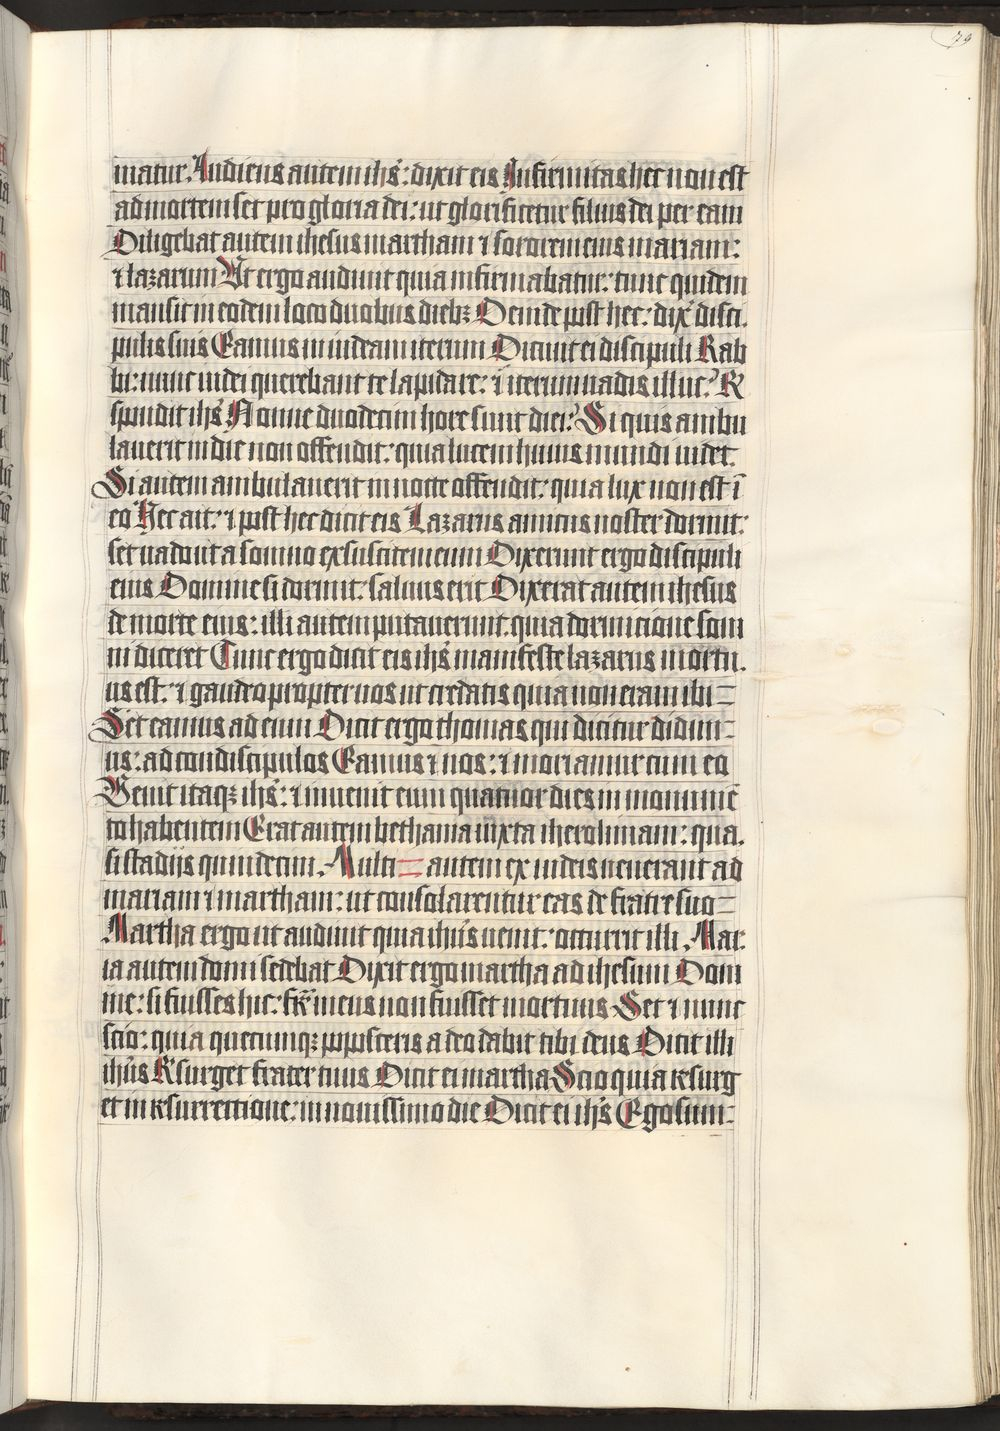 79
matur. Audiens autem ihs̄: dixit eis Infirmitas hec non est
ad mortem set pro gloria dei: ut glorificetur filius dei per eam
Diligebat autem ihesus martham ⁊ sororem eius mariam:
⁊ lazarum Ut ergo audiuit quia infirmabatur: tunc quidem
mansit in eodem loco duobus diebꝫ Deinde post hec: dix̄ disci.
pulis suis Eamus in iudeam iterum Dicunt ei discipuli Rab
bi: nunc iudei querebant te lapidare: ⁊ iterum uadis illuc? R
spondit ihs̄ Nonne duodecim hore sunt diei? Si quis ambu
lauerit in die non offendit: quia lucem huius mundi uidet.
Si autem ambulauerit in nocte offendit: quia lux non est ī
eo Hec ait: ⁊ post hec dicit eis Lazarus amicus noster dormit:
set uado ut a somno exsuscitem eum Dixerunt ergo discipuli
eius Domine si dormit: saluus erit Dixerat autem ihesus
de morte eius: illi autem putauerunt quia dormicione som
ni diceret Tunc ergo dicit eis ihs̄ manifeste lazarus mortu.
us est: ⁊ gaudeo propter uos ut credatis quia non eram ibi
Set eamus ad eum Dicit ergo thomas qui dicitur didim-
us: ad condiscipulos Eamus ⁊ nos: ⁊ moriamur cum eo
Venit itaqꝫ ihs̄: ⁊ inuenit eum quatuor dies in monumē
to habentem Erat autem bethania iuxta iherolimam: qua.
si stadijs quindecim. Multi autem ex iudeis uenerant ad
mariam ⁊ martham: ut consolarentur eas de fratre suo
Martha ergo ut audiuit quia ihūs uenit: occurrit illi Mar.
ia autem domi sedebat Dixit ergo martha ad ihesum Dom
ine: si fuisses hic: fr̄ meus non fuisset mortuus Set ⁊ nunc
scio: quia quecumqꝫ poposceris a deo dabit tibi deus Dicit illi
ihūs Rsurget frater tuus Dicit ei martha Scio quia resurg
et in resurrectione: in nouissimo die Dicit ei ihs̄ Ego sum: